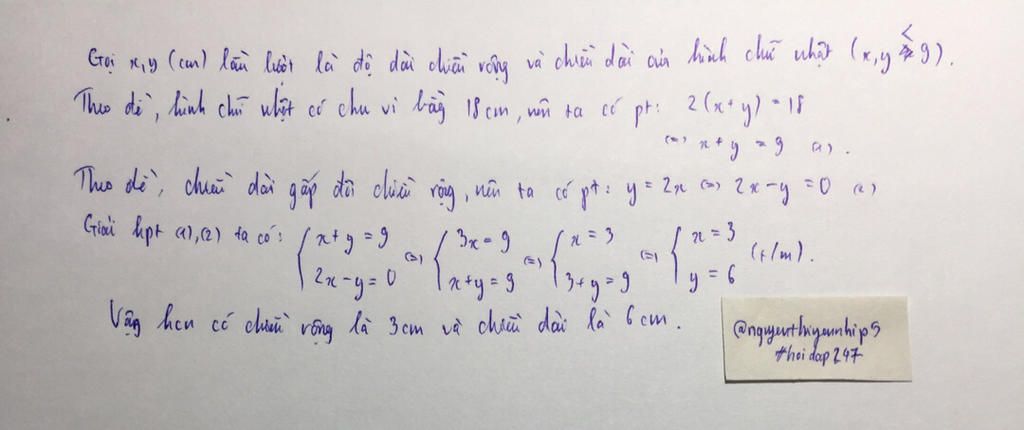 Gọi x, y (cm) lần lượt là độ dài chiều rộng và chiều dài của hình chữ nhật (x, y < 9).
Theo đề, hình chữ nhật có chu vi bằng 18cm, nên ta có pt: 2(x + y) = 18
(=) x + y = 9 (1).
Theo đề, chiều dài gấp đôi chiều rộng, nên ta có pt: y = 2x (=) 2x - y = 0 (2)
Giải hpt (1), (2) ta có: { x + y = 9 (=) { 3x = 9 (=) { x = 3 (=) { x = 3 (t/m).
2x - y = 0 x + y = 9 3 + y = 9 y = 6
Vậy hcn có chiều rộng là 3cm và chiều dài là 6cm.
@nguyenthiyennhi95
#hoidap247